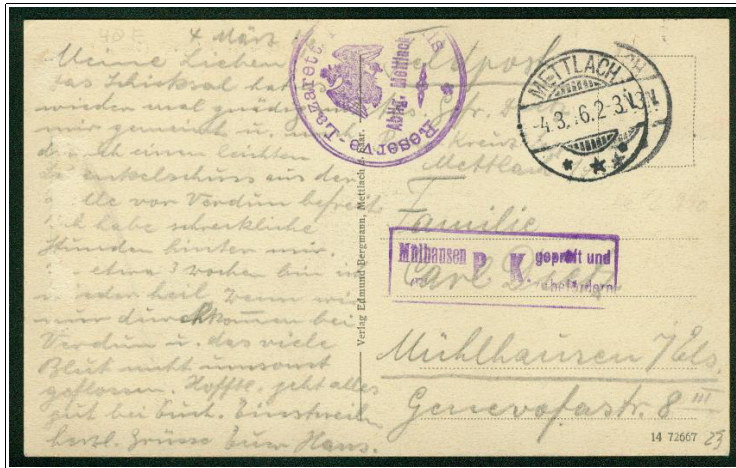 4 März
Meine Lieben
das Schicksal hat
wieder mal gnädig
mir gemeint u.
durch einen leichten
aus der
vor Verdun befreit
ich habe schreckliche
Stunden hinter mir.
etwa 3 Wochen bin ich
wieder heil. Wenn wir
nur durchkommen bei
Verdun u. das viele
Blut nicht umsonst
geflossen. Hofftl. geht alles
gut bei Euch. Einstweilen
herzl. Grüsse Euer Hans.
Verlag Edmund Bergmann, Mettlach a. Saar.
Reserve-Lazarett
Abtlg. Mettlach
Feldpost
METTLACH
4.3.16.2-3N
Mettlach
Familie
Carl
Mülhausen P. K. geprüft und
zu befördern
Mühlhausen /Els.
Genovefastr. 8 III
14 72667
23